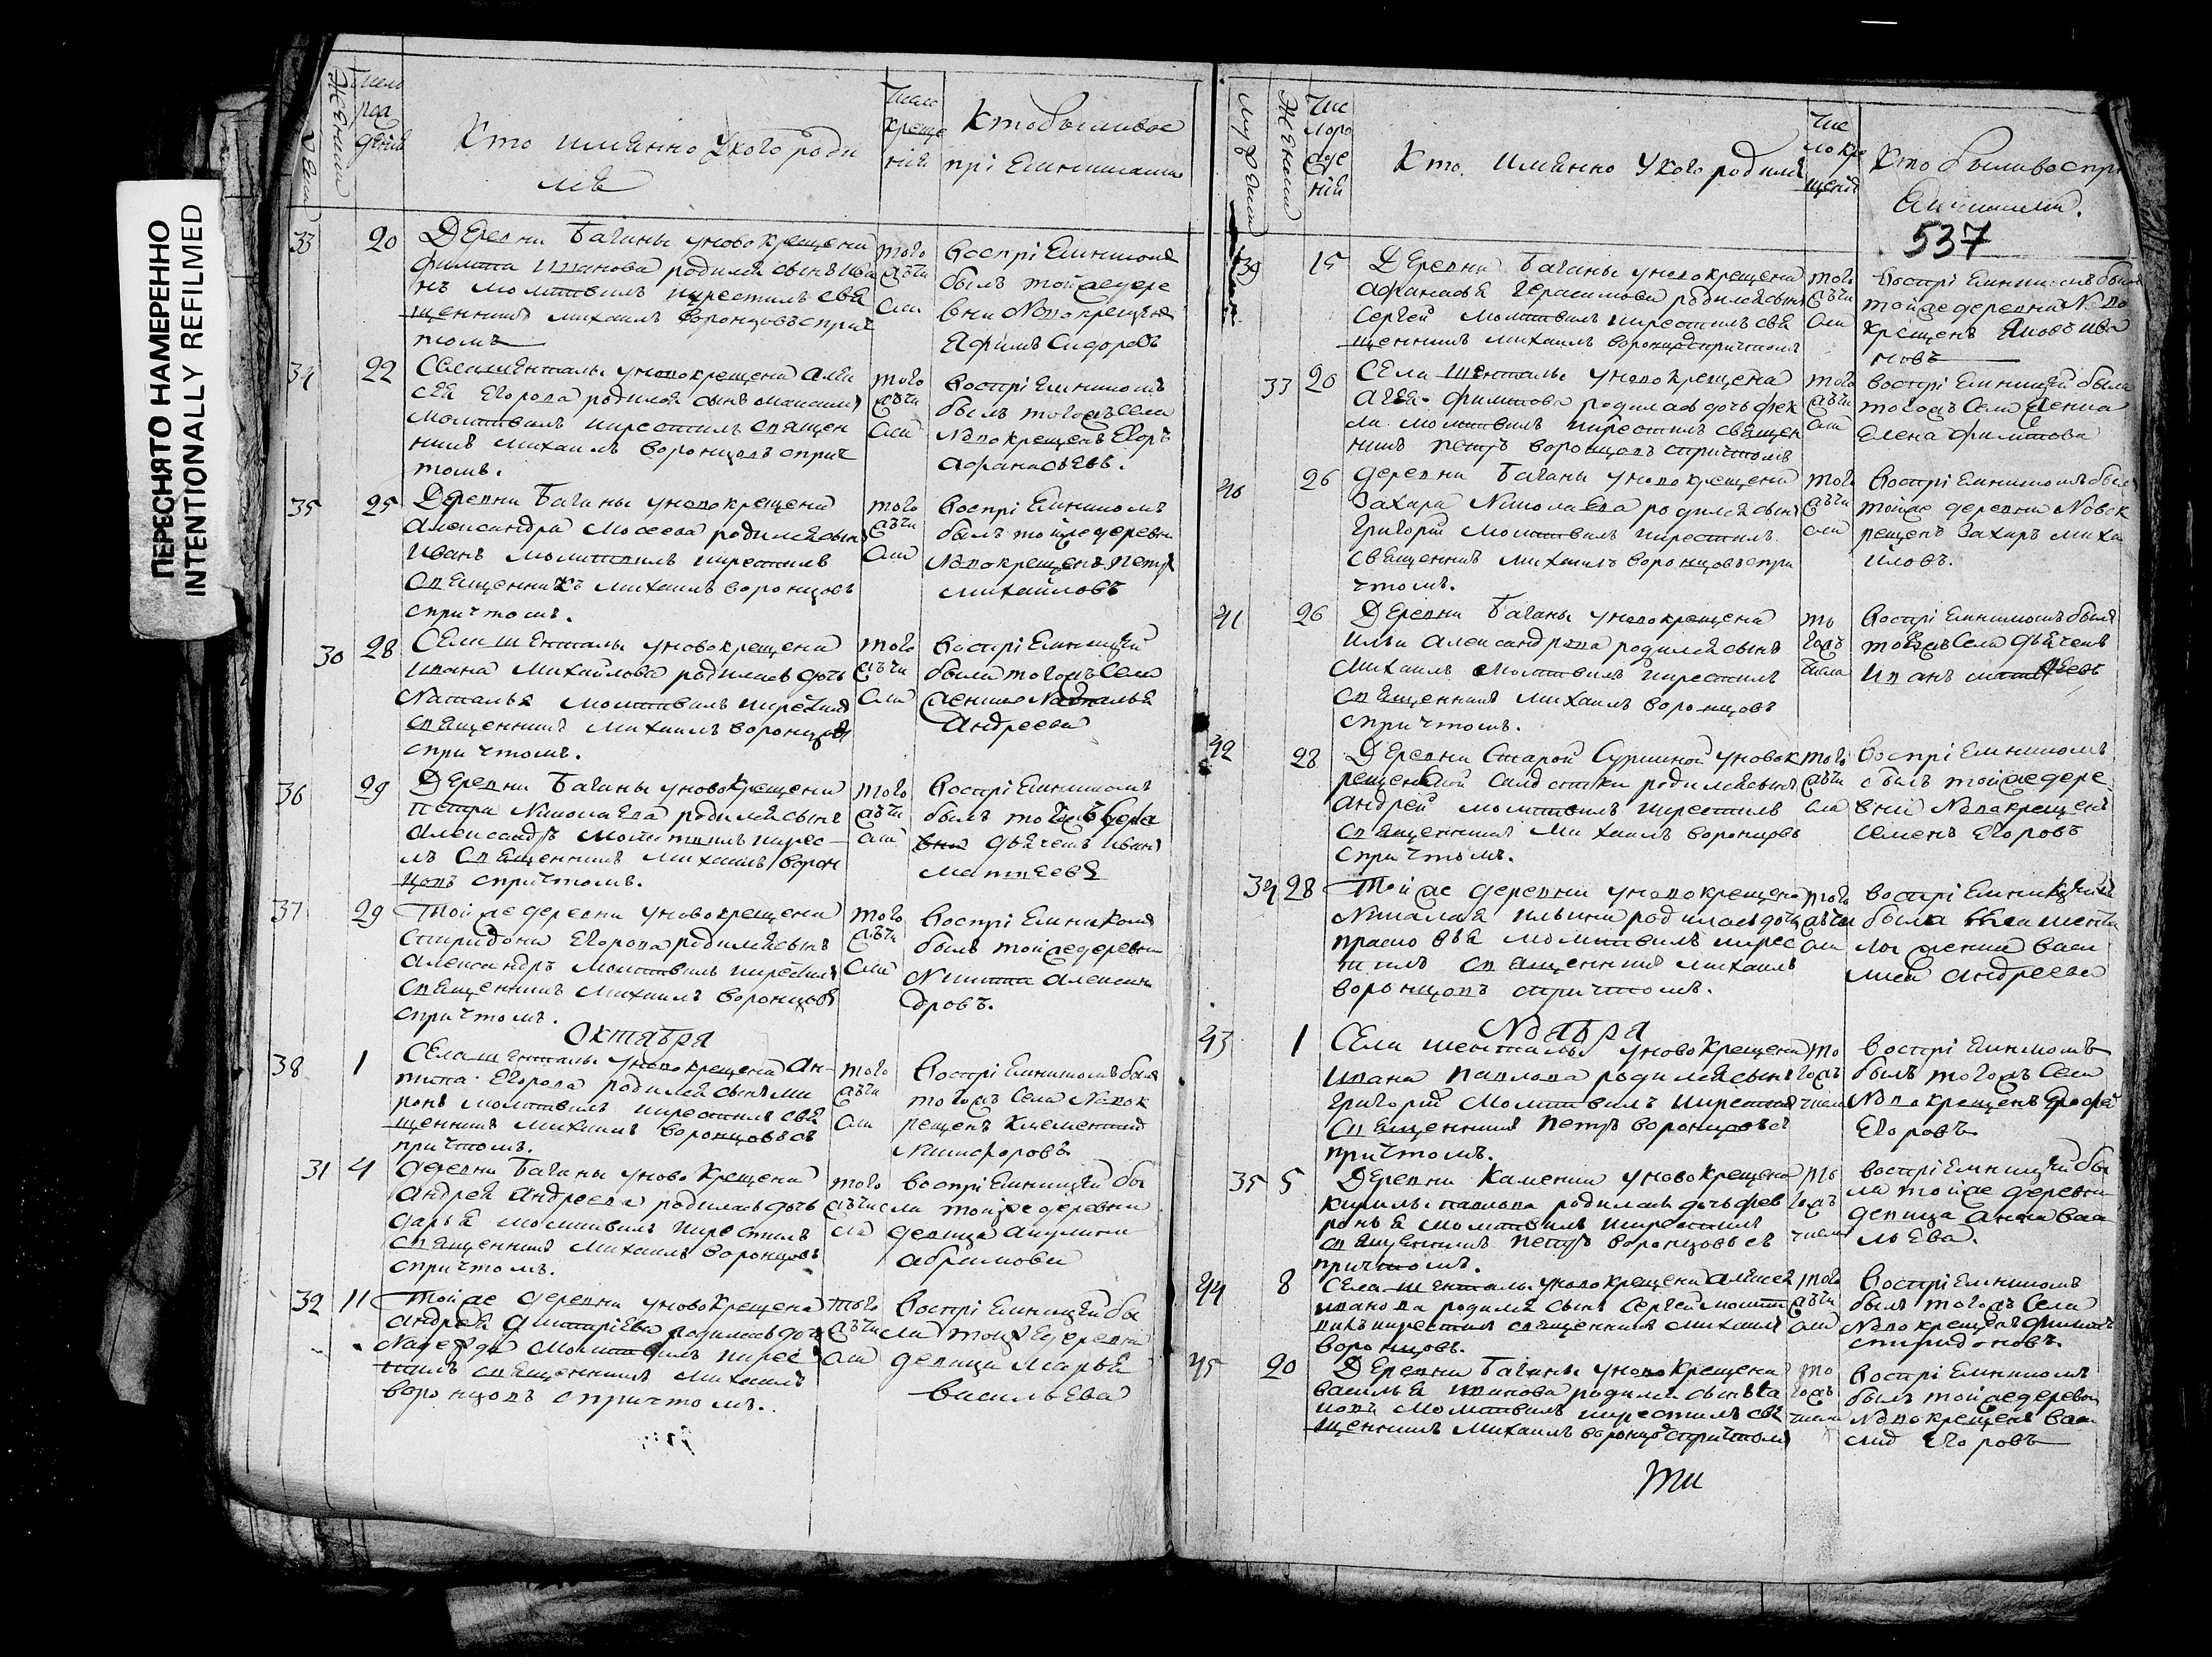 ПЕРЕСНЯТО НАМЕРЕННО
INTENTIONALLY REFILMED
Женска
Число рождения
Кто имянно у кого роди
лся
Число
креще
нія
Кто были вос
пріемниками
33
20
Деревни Баганы у новокрещена
Филипа Иванова родился сынъ Ива
нъ молитвилъ и крестилъ свя
щенникъ Михаилъ Воронцовъ с прич
томъ
того
жъ чи
сла
Воспріемникомъ
былъ той же дере
вни Новокрещенъ
Ефимъ Сидоровъ
34
22
Села Шенталы у новокрещена Алек
сея Егорова родился сынъ Максимъ
молитвилъ и крестилъ священ
никъ Михаилъ Воронцовъ с прич
томъ.
того
жъ чи
сла
Воспріемникомъ
былъ тогожъ села
Новокрещенъ Егоръ
Афанасьевъ.
35
25
Деревни Баганы у новокрещена
Александра Мосеева родился сынъ
Иванъ молитвилъ и крестилъ
священникъ Михаилъ Воронцовъ
с причтомъ.
того
жъ чи
сла
Воспріемникомъ
былъ той же деревни
Новокрещенъ Петръ
Михайловъ
30
28
Села Шенталы у новокрещена
Ивана Михайлова родилась дочь
Наталья молитвилъ и крестилъ
священникъ Михаилъ Воронцовъ
с причтомъ.
того
жъ чи
сла
Воспріемницей
была тогожъ села
женка Наталья
Андреева
36
29
Деревни Баганы у новокрещена
Петра Николаева родился сынъ
Александръ молитвилъ и крес
лъ священникъ Михаилъ Ворон
цовъ с причтомъ.
того
жъ чи
сла
Воспріемникомъ
былъ тогожъ села
дьячекъ Иванъ
Матвеевъ
37
29
Той же деревни у новокрещена
Спиридона Егорова родился сынъ
Александръ молитвилъ и крестилъ
священникъ Михаилъ Воронцовъ
с причтомъ.
того
жъ чи
сла
Воспріемникомъ
былъ той же деревни
Никита Алексан
дровъ.
Октября
38
1
Села Шенталы у новокрещена Ан
типа Егорова родился сынъ Ми
ронъ молитвилъ и крестилъ свя
щенникъ Михаилъ Воронцовъ съ
причтомъ.
того
жъ чи
сла
Воспріемникомъ былъ
тогожъ села Новок
рещенъ Клементий
Никифоровъ
31
4
Деревни Баганы у новокрещена
Андрея Андреева родилась дочь
Дарья молитвилъ и крестилъ
священникъ Михаилъ Воронцовъ
с причтомъ.
того
жъ чис
ла
Воспріемницей бы
ла той же деревни
девица Акулина
Абрамова
32
11
Той же деревни у новокрещена
Андрея Дмитріева родилась дочь
Надежда молитвилъ и крес
тилъ священникъ Михаилъ
Воронцовъ с причтомъ.
того
жъ чи
сла
Воспріемницей бы
ла той же деревни
девица Марья
Васильева
Мужеска
Женска
Чис
ло ро
жде
нія
Кто имянно у кого родился
Чис
ло кре
щенія
Кто были воспрі
емниками.
537
39
15
Деревни Баганы у новокрещена
Афанасья Герасимова родился сынъ
Сергей молитвилъ и крестилъ свя
щенникъ Михаилъ Воронцовъ с причтомъ
того
жъ чи
сла
Воспріемникомъ былъ
той же деревни Ново
крещенъ Яковъ Ива
новъ
33
20
Села Шенталы у новокрещена
Агея Филипова родилась дочь Фек
ла молитвилъ и крестилъ священ
никъ Петръ Воронцовъ с причтомъ
того
жъ чи
сла
Воспріемницей была
тогожъ села женка
Елена Филипова
40
26
Деревни Баганы у новокрещена
Захара Николаева родился сынъ
Григорій молитвилъ и крестилъ
священникъ Михаилъ Воронцовъ с при
чтомъ.
того
жъ чи
сла
Воспріемникомъ былъ
той же деревни Новок
рещенъ Захаръ Миха
йловъ.
41
26
Деревни Баганы у новокрещена
Ильи Александрова родился сынъ
Михаилъ молитвилъ и крестилъ
священникъ Михаилъ Воронцовъ
с причтомъ.
то
гожъ
числа
Воспріемникомъ былъ
тогожъ села дьячекъ
Иванъ Матвеевъ
42
28
Деревни Старой Суркиной у новок
родился сынъ
Андрей молитвилъ и крестилъ
священникъ Михаилъ Воронцовъ
с причтомъ.
того
жъ чи
сла
Воспріемникомъ
былъ той же дере
вни Новокрещенъ
Семенъ Егоровъ
34
28
Той же деревни у новокрещена
Николая Ильина родилась дочь
Прасковья молитвилъ и крес
тилъ священникъ Михаилъ
Воронцовъ с причтомъ.
того
жъ чи
сла
Воспріемницей
была села Шента
лы женка Васи
лиса Андреева
Ноября
43
1
Села Шенталы у новокрещена
Ивана Павлова родился сынъ
Григорій молитвилъ и крестилъ
священникъ Петръ Воронцовъ с
причтомъ.
то
гожъ
числа
Воспріемникомъ
былъ тогожъ села
Новокрещенъ Ерофей
Егоровъ
35
5
Деревни Каменки у новокрещена
Кирилы Павлова родилась дочь Фев
ронья молитвилъ и крестилъ
священникъ Петръ Воронцовъ съ
причтомъ.
то
гожъ
числа
Воспріемницей бы
ла той же деревни
девица Анна Вас
льева.
44
8
Села Шенталы у новокрещена Алексея
Иванова родился сынъ Сергей молит
вилъ и крестилъ священникъ Михаилъ
Воронцовъ.
того
жъ чи
сла
Воспріемникомъ
былъ тогожъ села
Новокрещенъ Филипъ
Спиридоновъ.
45
20
Деревни Баганы у новокрещена
Василья Иванова родился сынъ Яа
ковъ молитвилъ и крестилъ свя
щенникъ Михаилъ Воронцовъ с причтомъ
то
гожъ
числа
Воспріемникомъ
былъ той же деревни
Новокрещенъ Васи
лий Егоровъ